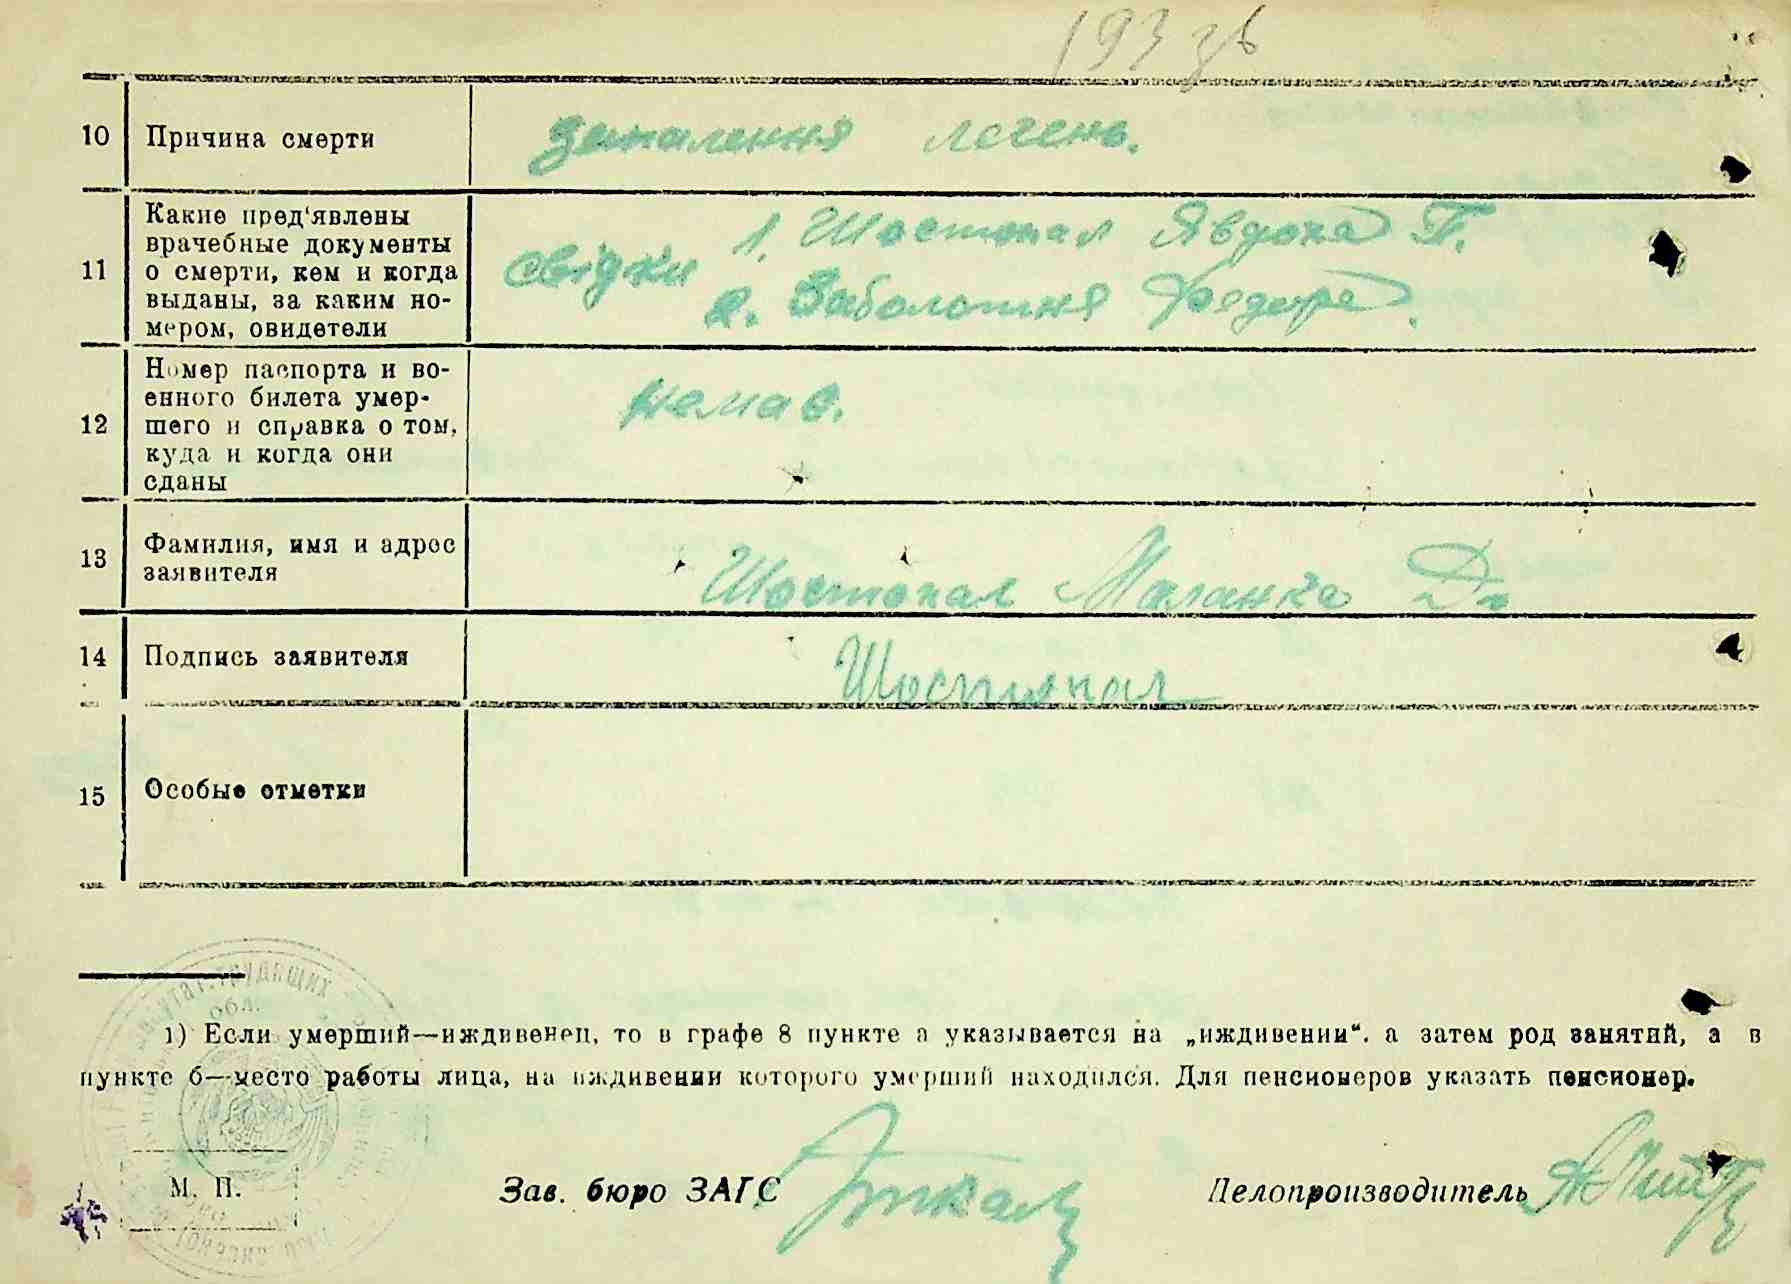 193 зв
10 Причина смерти запалення легень.
11 Какие пред'явлены
врачебные документы
о смерти, кем и когда
выданы, за каким но-
мером, овидетели
свідки 1. Шостопал Явдоха П.
2. Заболотня Федора.
12 Номер паспорта и во-
енного билета умер-
шего и справка о том,
куда и когда они
сданы
немає.
13 Фамилия, имя и адрес
заявителя
Шостопал Маланка Д.
14 Подпись заявителя Шостопал
15 Особые отметки
1) Если умерший—иждивенец, то в графе 8 пункте а указывается на „иждивении“. а затем род занятий, а в
пункте б—место работы лица, на иждивении которого умерший находился. Для пенсионеров указать пенсионер.
М. П. Зав. бюро ЗАГС Делопроизводитель